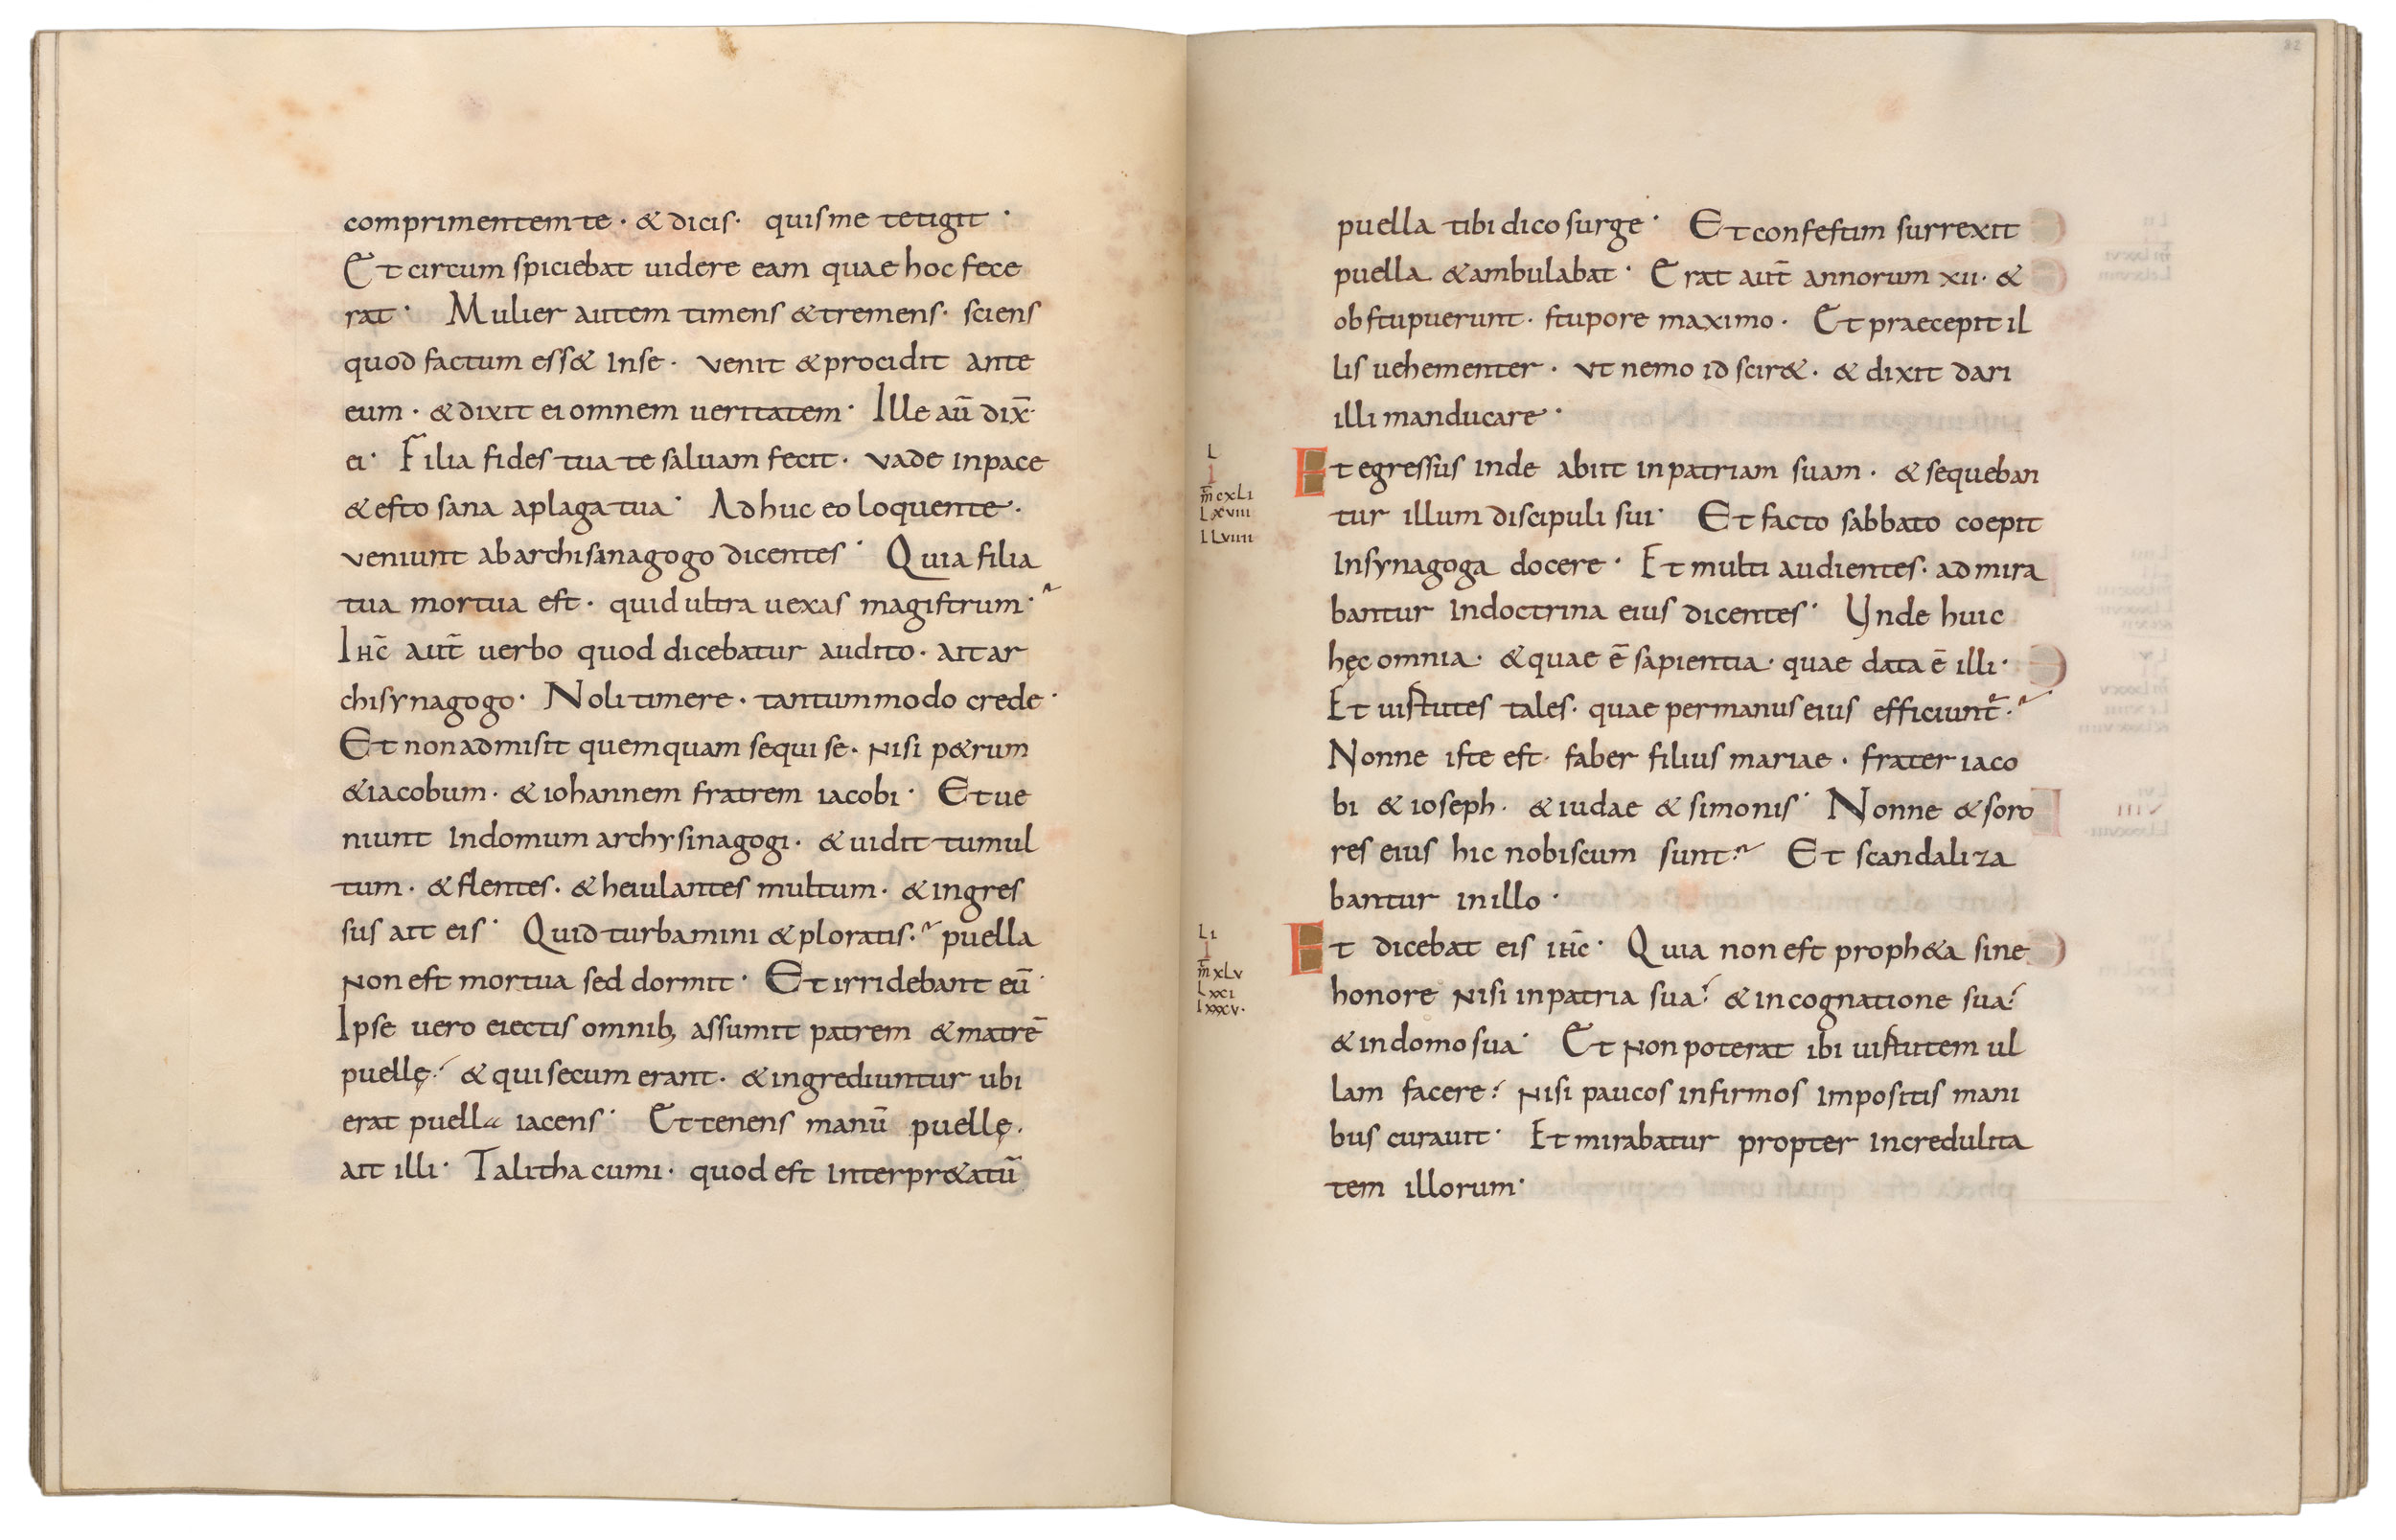 comprimentem te · & dicis · quis me tetigit ·
Et circum spiciebat uidere eam quae hoc fece
rat · Mulier autem timens & tremens · sciens
quod factum ess& In se · venit & procidit ante
eum · & dixit ei omnem ueritatem · Ille aū dix̄·
ei · Filia fides tua te saluam fecit · vade in pace
& esto sana a plaga tua · Ad huc eo loquente ·
veniunt ab archisinagogo dicentes · Quia filia
tua mortua est · quid ultra uexas magistrum ·
Ihc̄ aut̄ uerbo quod dicebatur audito · ait ar
chisynagogo · Noli timere · tantummodo crede ·
Et non admisit quemquam sequi se · Nisi p&rum
& iacobum · & iohannem fratrem iacobi · Et ue
niunt In domum archysinagogi · & uidit tumul
tum · & flentes · & heiulantes multum · & ingres
sus ait eis · Quid turbamini & ploratis · puella
Non est mortua sed dormit · Et irridebant eū ·
Ipse uero eiectis omnib; assumit patrem & matrē
puellę · & qui secum erant · & ingrediuntur ubi
erat puella iacens · Et tenens manū puellę ·
ait illi · Talitha cumi · quod est Interpr&atū
82
puella tibi dico surge · Et confestim surrexit
puella & ambulabat · Erat aut̄ annorum xii · &
obstupuerunt · stupore maximo · Et praecepit il
lis uehementer · vt nemo id scir& · & dixit dari
illi manducare ·
L
I
m̄ cxLi
Lxviii
I Lviiii
Et egressus inde abiit in patriam suam · & sequeban
tur illum discipuli sui · Et facto sabbato coepit
In synagoga docere · Et multi audientes · admira
bantur In doctrina eius dicentes · Vnde huic
hęc omnia · & quae ē sapientia · quae data ē illi ·
Et uirtutes tales · quae per manus eius efficiunt̄ ·
Nonne iste est · faber filius mariae · frater iaco
bi & ioseph · & iudae & simonis · Nonne & soro
res eius hic nobiscum sunt · Et scandaliza
bantur in illo ·
LI
I
m̄ xLv
Lxxi
Lxxxv ·
Et dicebat eis ihc̄ · Quia non est proph&a sine
honore Nisi in patria sua · & in cognatione sua ·
& in domo sua · Et Non poterat ibi uirtutem ul
lam facere · Nisi paucos infirmos Impositis mani
bus curauit · Et mirabatur propter Incredulita
tem illorum ·